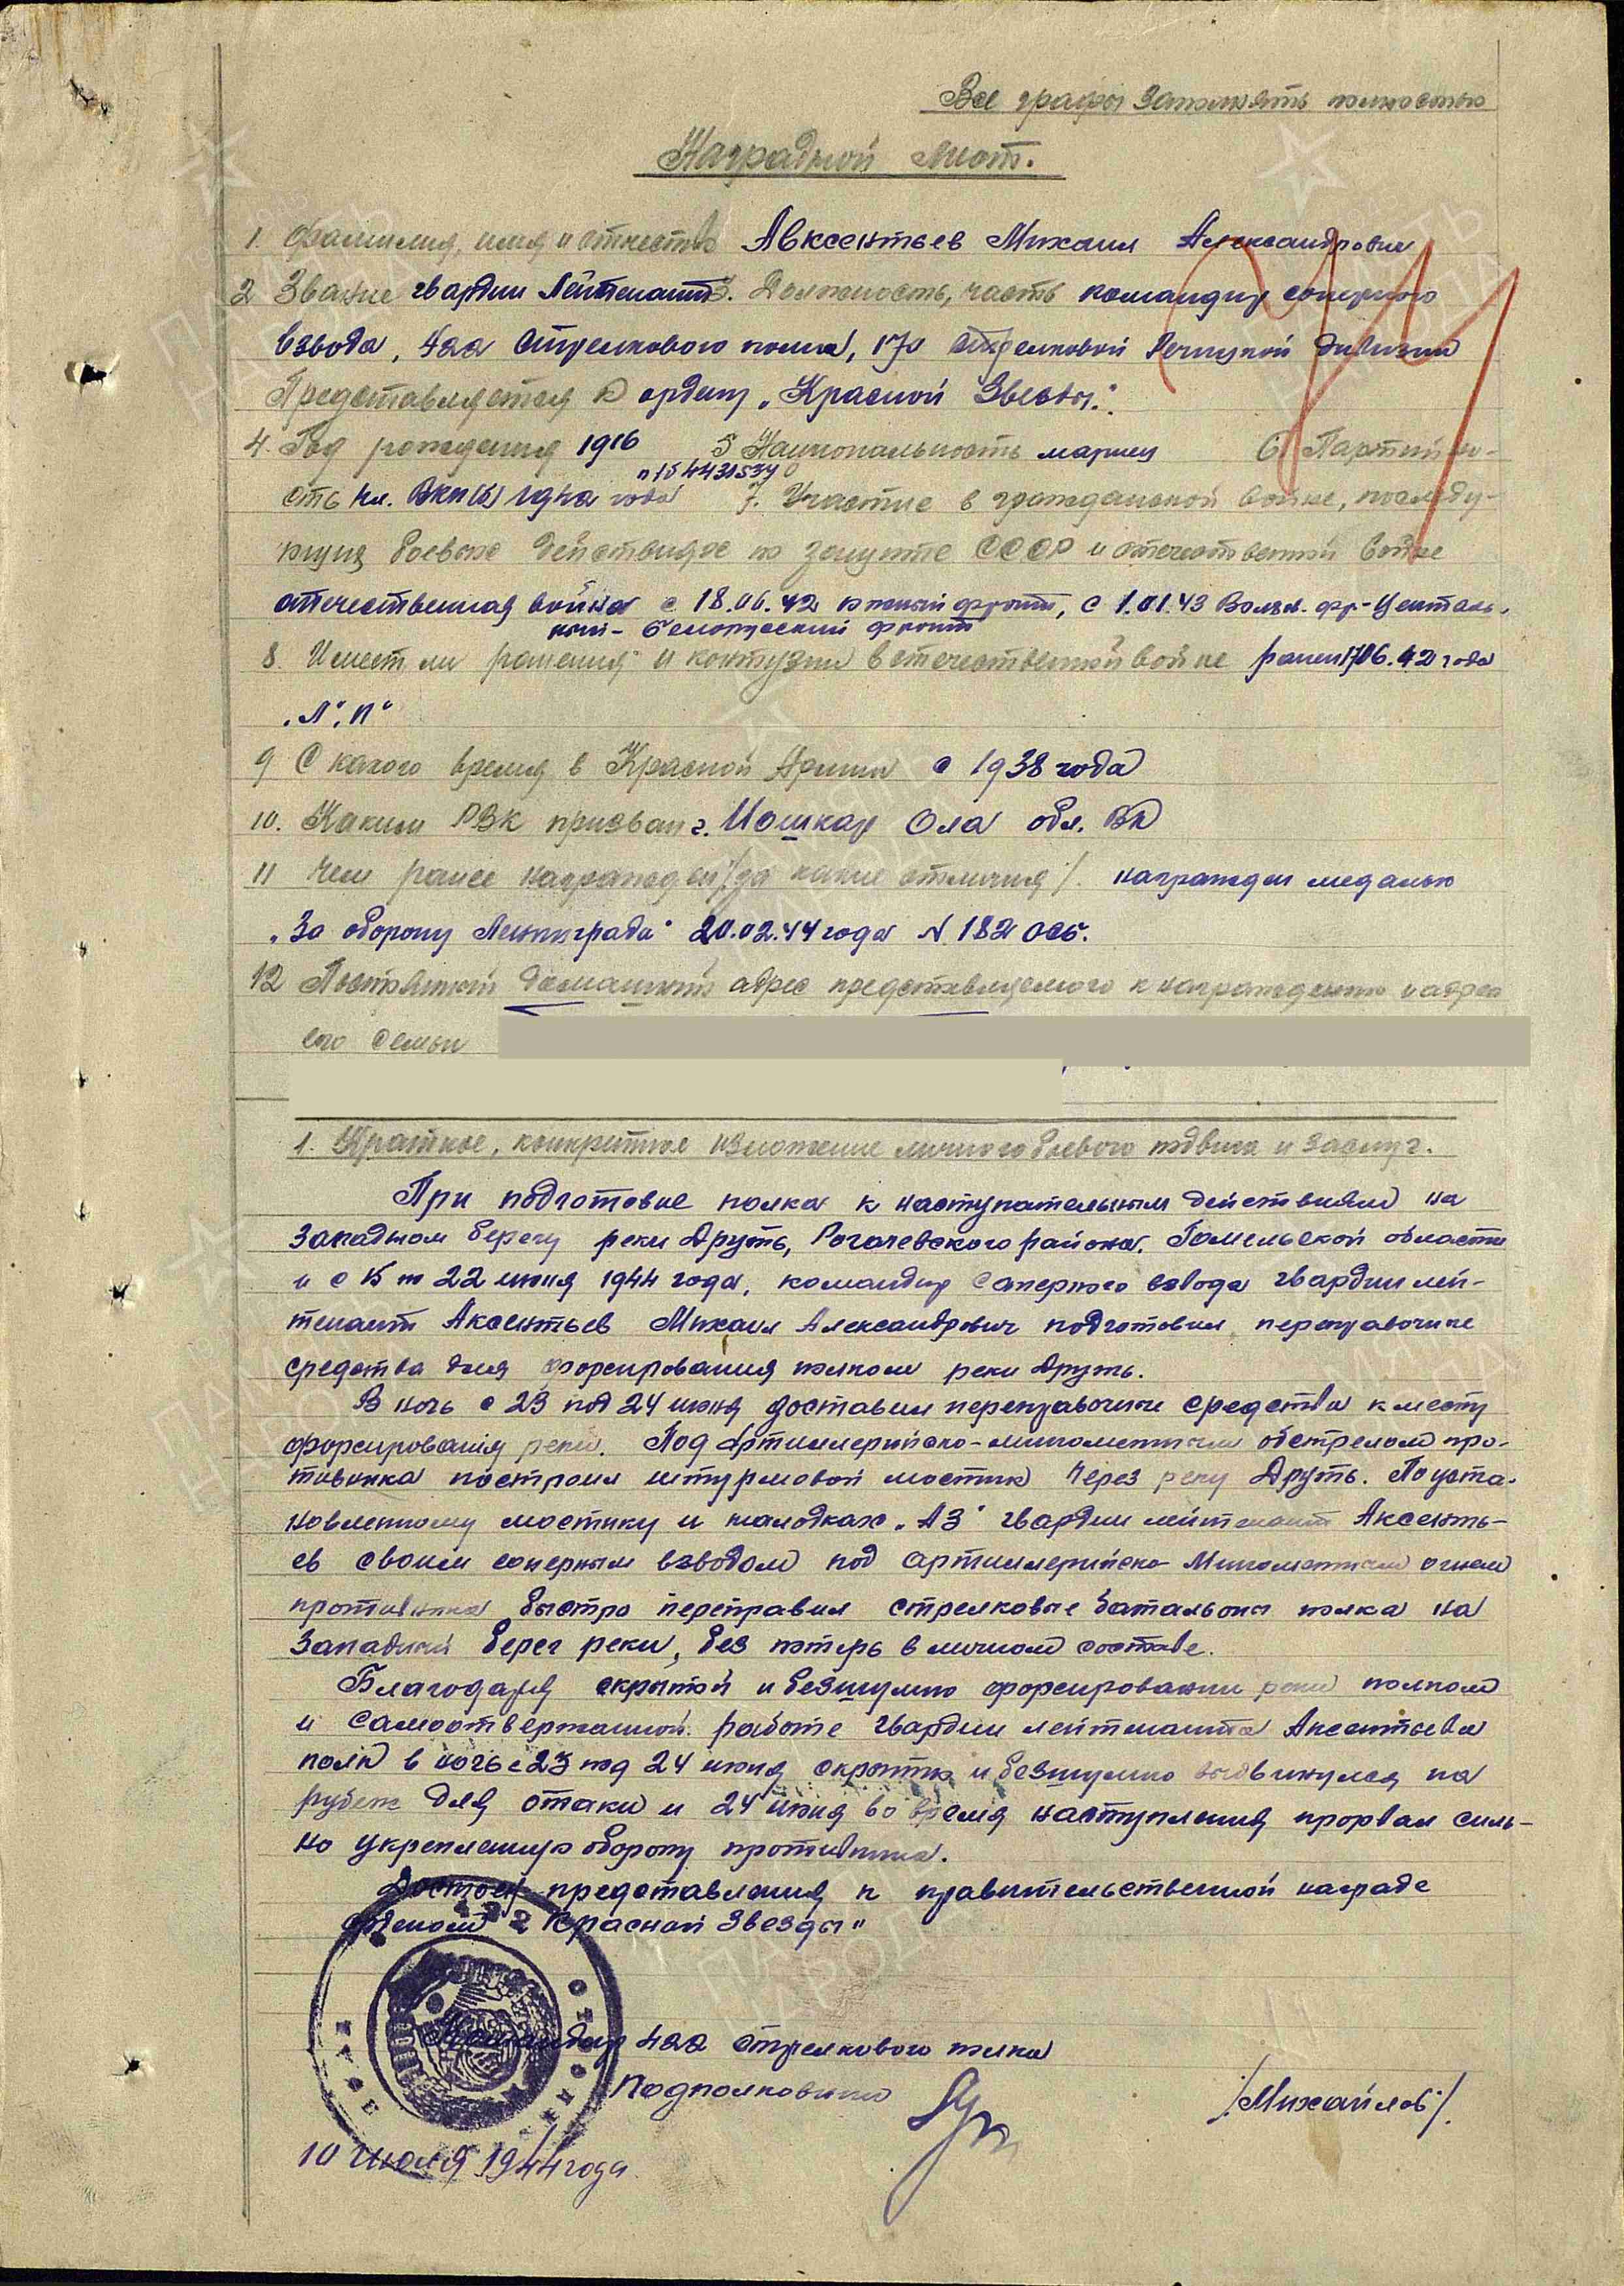 Все графы заполнять полностью
Наградной лист.
1. Фамилия, имя и отчество Авксентьев Михаил Александрович
2 Звание гвардии лейтенант 3. Должность, часть командир саперного
взвода, 422 стрелкового полка, 170 стрелковой Речицкой дивизии
Представляется к ордену „Красной Звезды".
4. Год рождения 1916 5 Национальность мариец 6. Партийно-
сть чл. ВКП(б) 1942 года 7. Участие в гражданской войне, последу-
ющих боевых действиях по защите СССР и отечественной войне
отечественная война с 18.06.42 южный фронт, с 1.01.43 Волхв. фр-Централь.
ный - Белорусский фронт
8. Имеет ли ранения и контузии в отечественной войне ранен 17.06.42 года
„Л", П"
9 С какого время в Красной Армии с 1938 года
10. Каким РВК призван г. Йошкар Ола обл. ВК
11 Чем ранее награжден /за какие отличия/. награжден медалью
„За оборону Ленинграда" 20.02.44 года №
12 Постоянный домашний адрес представляемого к награждению и адрес
его семьи
1. Краткое, конкретное изложение личного боевого подвига и заслуг.
При подготовке полка к наступательным действиям на
западном берегу реки Друть, Рогачевского района, Гомельской области
и с 15 по 22 июня 1944 года, командир саперного взвода гвардии лей-
тенант Аксентьев Михаил Александрович подготовил переправочные
средства для форсирования полком реки Друть.
В ночь с 23 под 24 июня доставил переправочные средства к месту
форсирования реки. Под артиллерийско-минометным обстрелом про-
тивника построил штурмовой мостик через реку Друть. По уста-
новленному мостику и на лодках „А3" гвардии лейтенант Аксенть-
ев своим саперным взводом под артиллерийско-минометным огнем
противника быстро переправил стрелковые батальоны полка на
западный берег реки, без потерь в личном составе.
Благодаря скрытой и безшумно форсировании реки полком
и самоотверженной работе гвардии лейтенанта Аксентьева
полк в ночь с 23 под 24 июня скрытно и безшумно выдвинулся на
рубеж для атаки и 24 июня во время наступления прорвал силь-
но укрепленную оборону противника.
Достоен представления к правительственной награде
орденом „Красной Звезды"
Командир 422 стрелкового полка
Подполковник /Михайлов/.
10 июля 1944 года